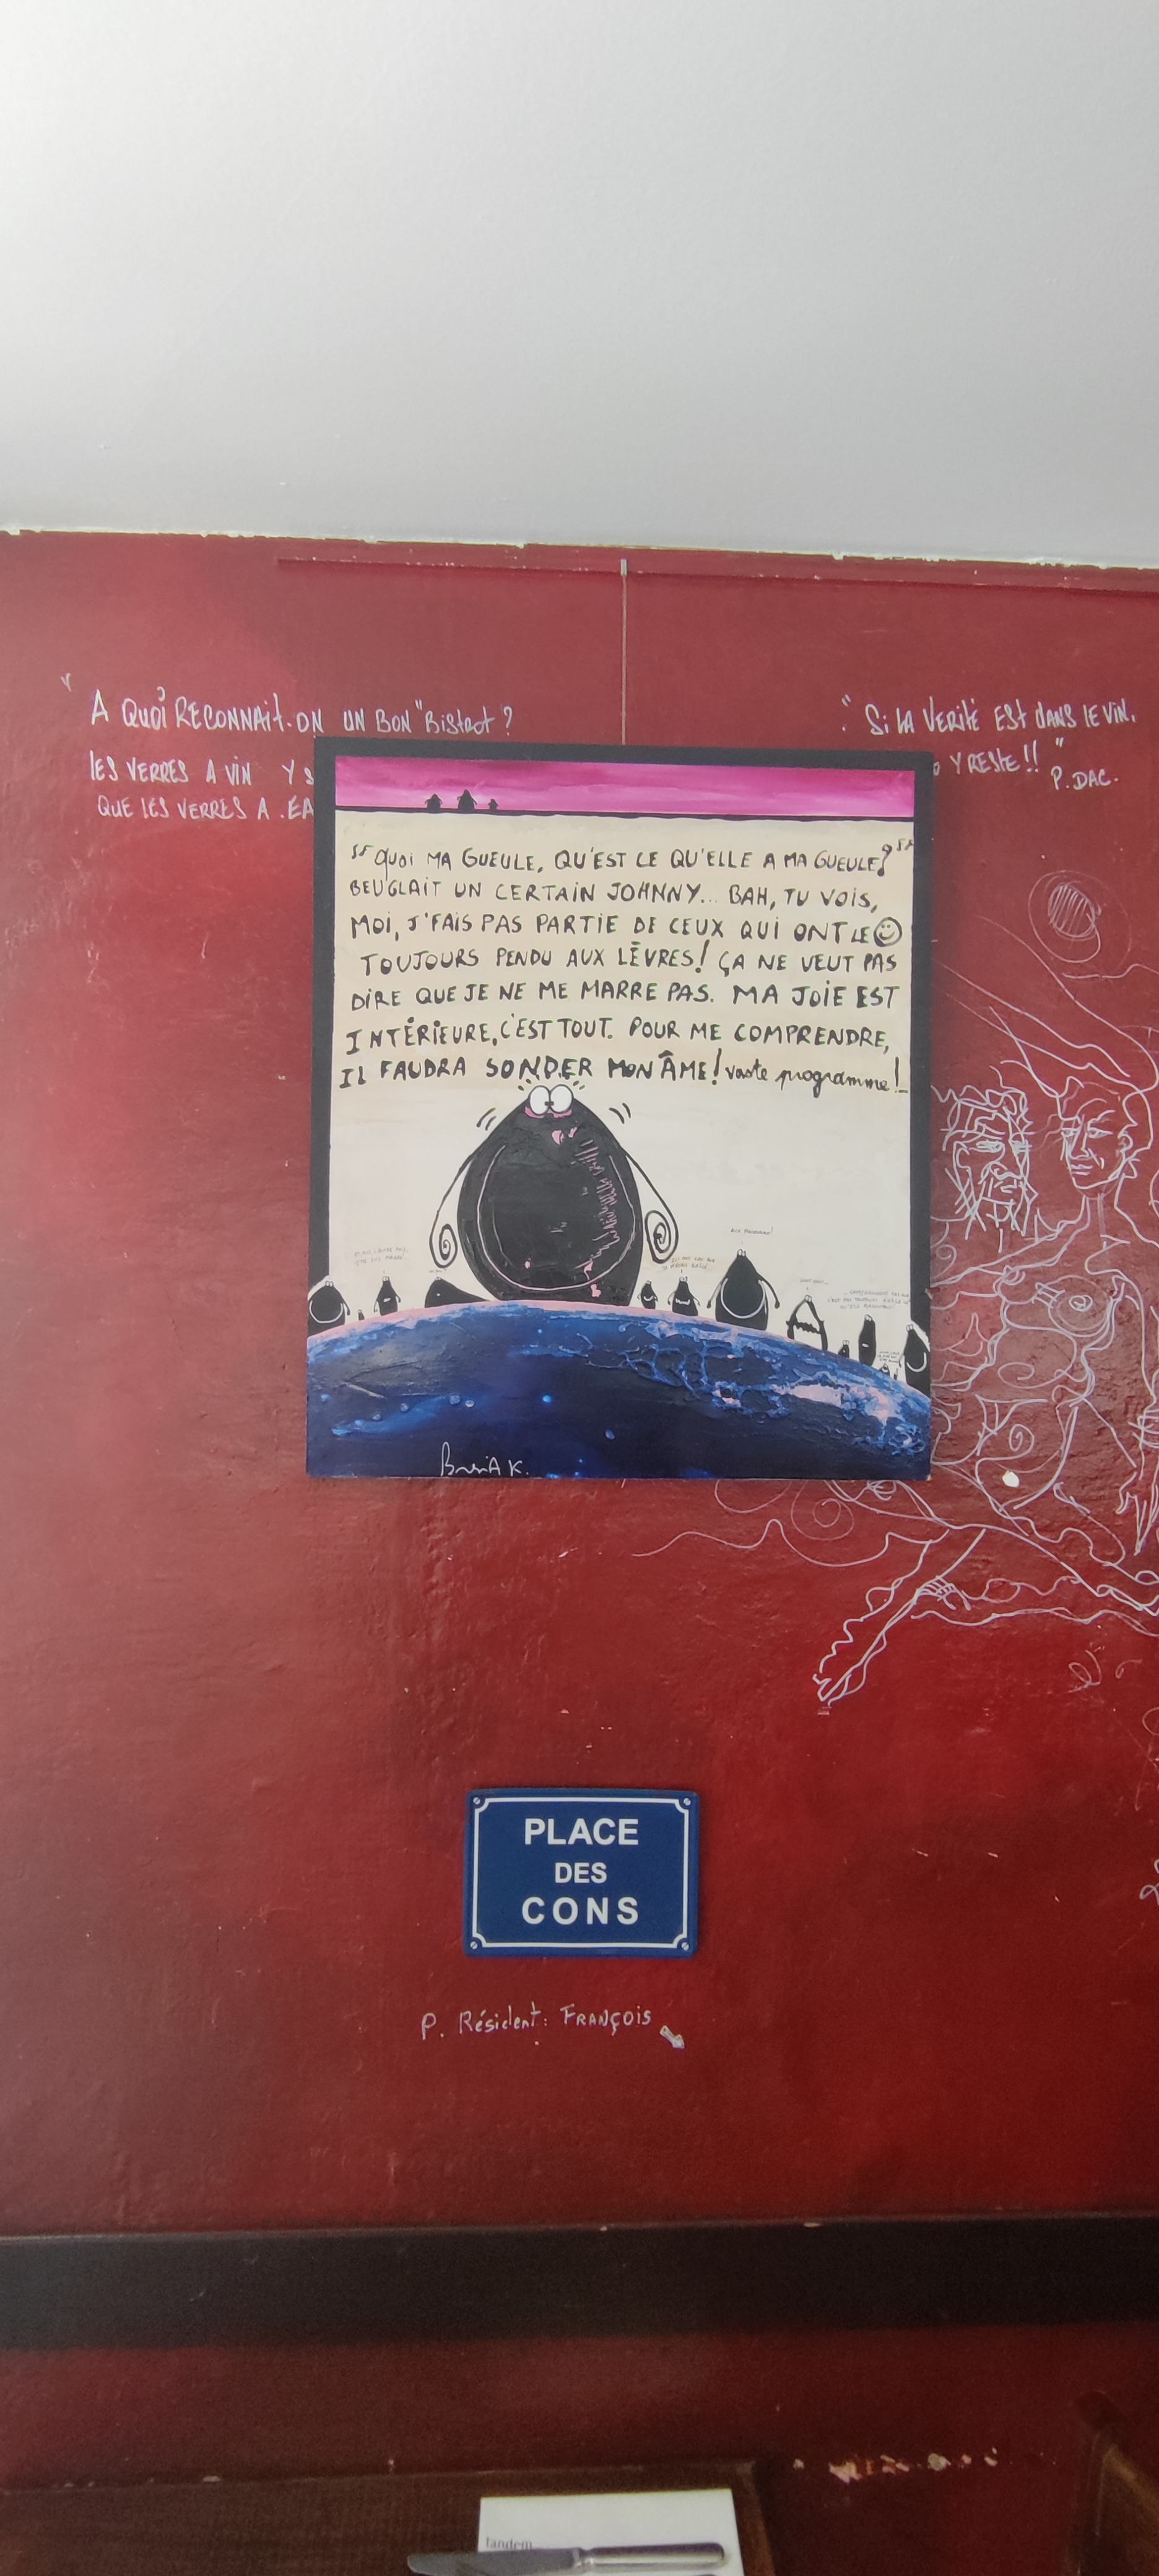 " A QUOI RECONNAIT-ON UN BON "BISTROT" ?
LES VERRES A VIN Y S
QUE LES VERRES A EA
" Si LA VERITÉ EST DANS LE VIN,
Y RESTE !! "
P. DAC.
"QUOI MA GUEULE, QU'EST CE QU'ELLE A MA GUEULE?"
BEUGLAIT UN CERTAIN JOHNNY... BAH, TU VOIS,
MOI, J'FAIS PAS PARTIE DE CEUX QUI ONT LE ☺
TOUJOURS PENDU AUX LÈVRES! ÇA NE VEUT PAS
DIRE QUE JE NE ME MARRE PAS. MA JOIE EST
INTÉRIEURE, C'EST TOUT. POUR ME COMPRENDRE,
IL FAUDRA SONDER MON ÂME! vaste programme!
PLACE
DES
CONS
P. Résident: FRANÇOIS
tandem